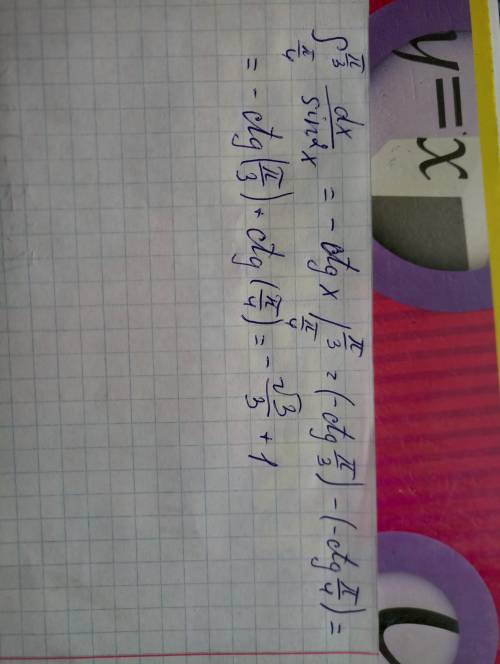 ∫_{π/4}^{π/3} dx/sin²x = - ctg x |_{π/4}^{π/3} = (-ctg π/3) - (-ctg π/4) =
= - ctg(π/3) + ctg(π/4) = - √3/3 + 1
y = x